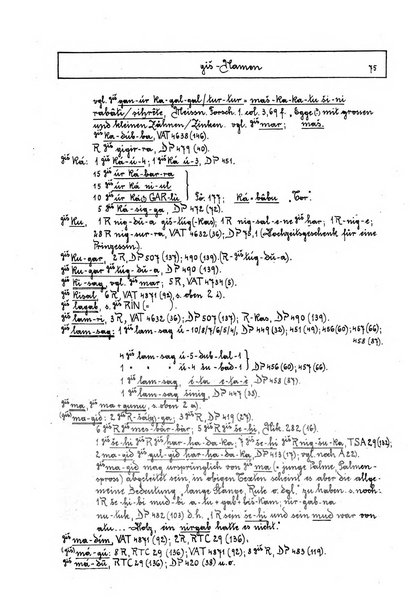 giš-Namen 75
vgl. giš gan-úr ka-gal-gal/tur-tur = maš-ka-ka-tu ši-ni
rabâti/sihrête, Meissn. Forsch. I. col. 3, 69 f. „Egge(?) mit grossen
und kleinen Zähnen/Zinken. vgl. giš mar; maš.
giš ka-dúb-ba, VAT 4638 (146).
R giš gigir-ra, DP 479 (40).
giš Ká: 1 giš Ká-ú-4; 1 giš Ká ú-3, DP 451.
15 giš úr ká-bar-ra
15 giš úr ká ni-ul
10 giš úr ká GAR-lu So. 177; Ká-bâbu „Tor".
5 giš ká-sig-ga, DP 472 (72).
giš Ku. 1 R nig-du-a giš-túg(-Kas), 1 R nig-sal-e-ne giš ḫar; 1 R-nig-e;
28 R nig-sur-ra, VAT 4632 (36); DP 75,1 (=Hochzeitsgeschenk für eine
Prinzessin).
giš Ku-gar, 2 R, DP 507 (137); 490 (139). (R giš túg-dù-a).
giš Ku-gar giš túg-dù-a, DP 490 (139).
giš Ki-sag, vgl. giš mar; 5 R, VAT 4734 (5).
giš Kisal, 6 R, VAT 4871 (92), s. oben 2 i).
giš lagab, s. giš RIN
giš lam-ri, 3 R, VAT 4632 (36); DP 507 (137); R-Kas, DP 490 (139).
giš lam-sag: 1 giš lam-sag ú-10/8/7/6/5/4/, DP 449 (32); 451 (49); 456 (60); 457 (66);
458 (87).
4 giš lam-sag ú-5-dub-lal-1
1 " " ú-4 šu-bad-1 DP 456 (60); 457 (66)
1 giš lam-sag, i-ta e-ta-è, DP 458 (87).
1 giš lam-sag šinig, DP 447 (33).
giš ma, giš ma-gunu, s. oben 2 a).
(giš) ma-gíd: 2 giš R-saig-ga; 3 R, DP 419 (27).
6 giš R giš mes-bár-bár; 5 giš R giš še-ḫi, Nik. 282 (16).
1 giš še-ḫi giš R giš ḫar-ḫa-da-ka, 7 giš še-ḫi giš R nig-šu-ka, TSA 29 (132);
2 ma-gíd giš gul-gid ḫar-ḫa-da-ka, DP 413 (17); vgl. noch A 22).
giš ma-gíd mag ursprünglich von giš ma (= junge Palme Palmen-
spross) abgeleitet sein, in obigen Texten scheint es aber die allge-
meine Bedeutung „lange Stange, Rute o. dgl. zu haben. s. noch:
1 R še-ḫi-bi mud-bi a-lu + gab+bi-kam; nir-gab-na
nu-tuk, DP 482 (108) d.h. „1 R sein še-ḫi und sein mud war von
alu... -Holz, ein nirgab hatte es nicht."
giš ma-dím, VAT 4871 (92); 2 R, RTC 29 (136).
(giš) má-gú: 8 R, RTC 29 (136); VAT 4871 (92); 8 giš R, DP 483 (119).
giš má-dù, RTC 29 (136); DP 420 (38) u.o.